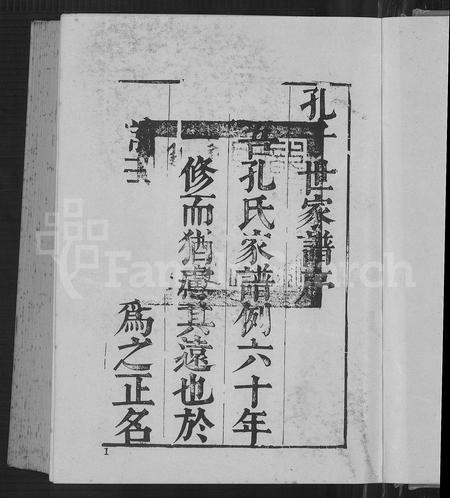 孔子世家譜序
吾孔氏家譜例六十年
修而猶慮其遠也於
為之正名
FamilySearch
1